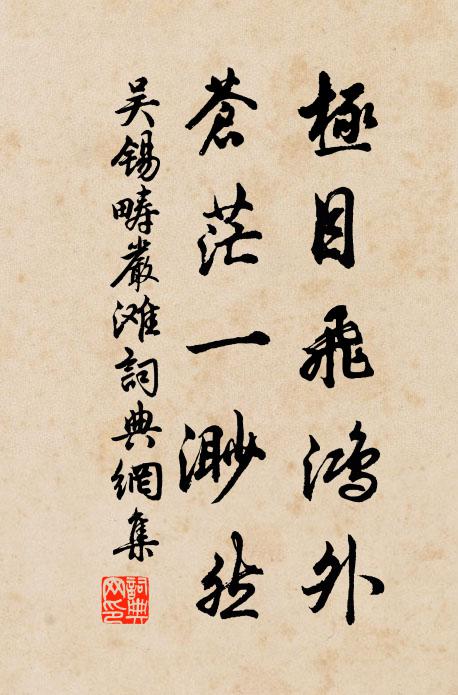 極目飛鴻外
蒼茫一渺然
吴錫疇嚴滩詞典網集
詞典网印